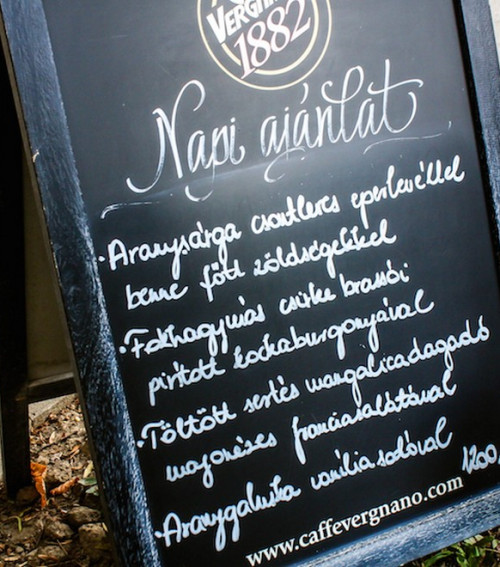 VERGNANO
1882
Napi ajánlat
• Aranysárga csontleves eperlevéllel
benne főtt zöldségekkel
• Fokhagymás csirke brassói
pirított kockaburgonyával
• Töltött sertés mangalicadagadó
majonézes franciasalátával
• Aranygaluska vanília sodóval 1200,
www.caffevergnano.com